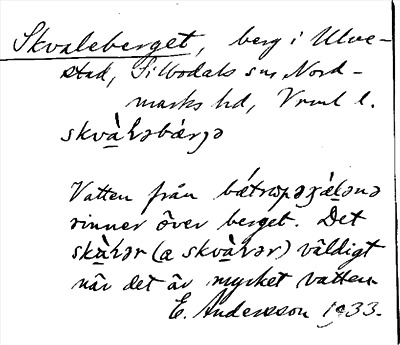 Skvaleberget, berg i Ulve-
stad, Silbodals sn, Nord-
marks hd, Vrml l.
skvàlºbárjə
Vatten från
rinner över berget. Det
(æ skvàlər) väldigt
när det är mycket vatten.
E. Andersson 1933.